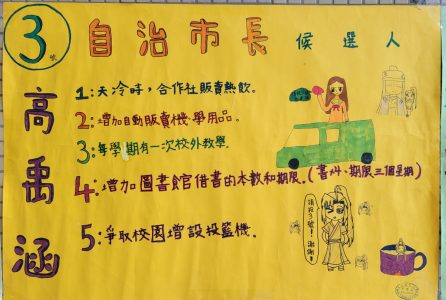 3號
自治市長候選人
高禹涵
1:天冷時,合作社販賣熱飲。
2:增加自動販賣機-學用品。
3:每學期有一次校外教學.
4:增加圖書館借書的本數和期限.(書4本、期限三個星期)
5:爭取校園增設投籃機.
請投3號!謝謝!